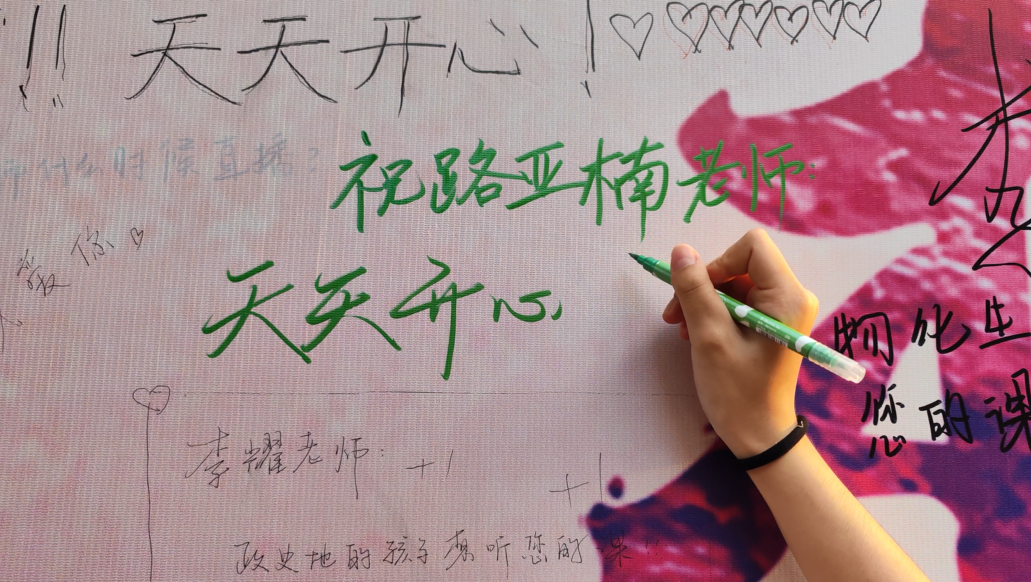 !!
天天开心!
师什么时候直播？
祝路亚楠老师：
爱你
天天开心
物化生
您的课
李耀老师： +1
+1
政史地的孩子想听您的课